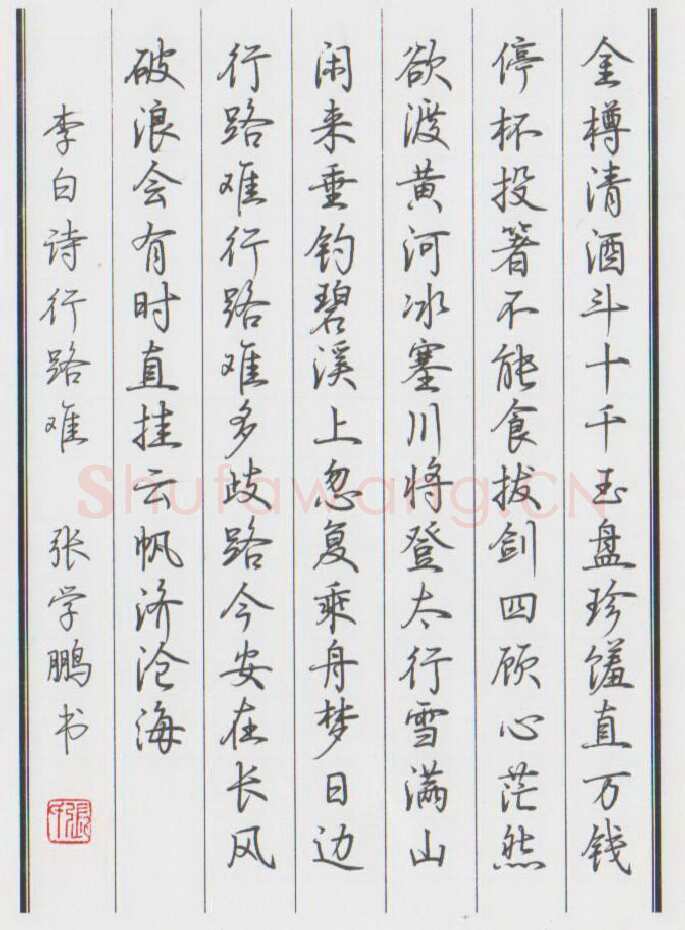 金樽清酒斗十千玉盘珍馐直万钱
停杯投箸不能食拔剑四顾心茫然
欲渡黄河冰塞川将登太行雪满山
闲来垂钓碧溪上忽复乘舟梦日边
行路难行路难多歧路今安在长风
破浪会有时直挂云帆济沧海
李白诗行路难 张学鹏书
Shufawang.CN